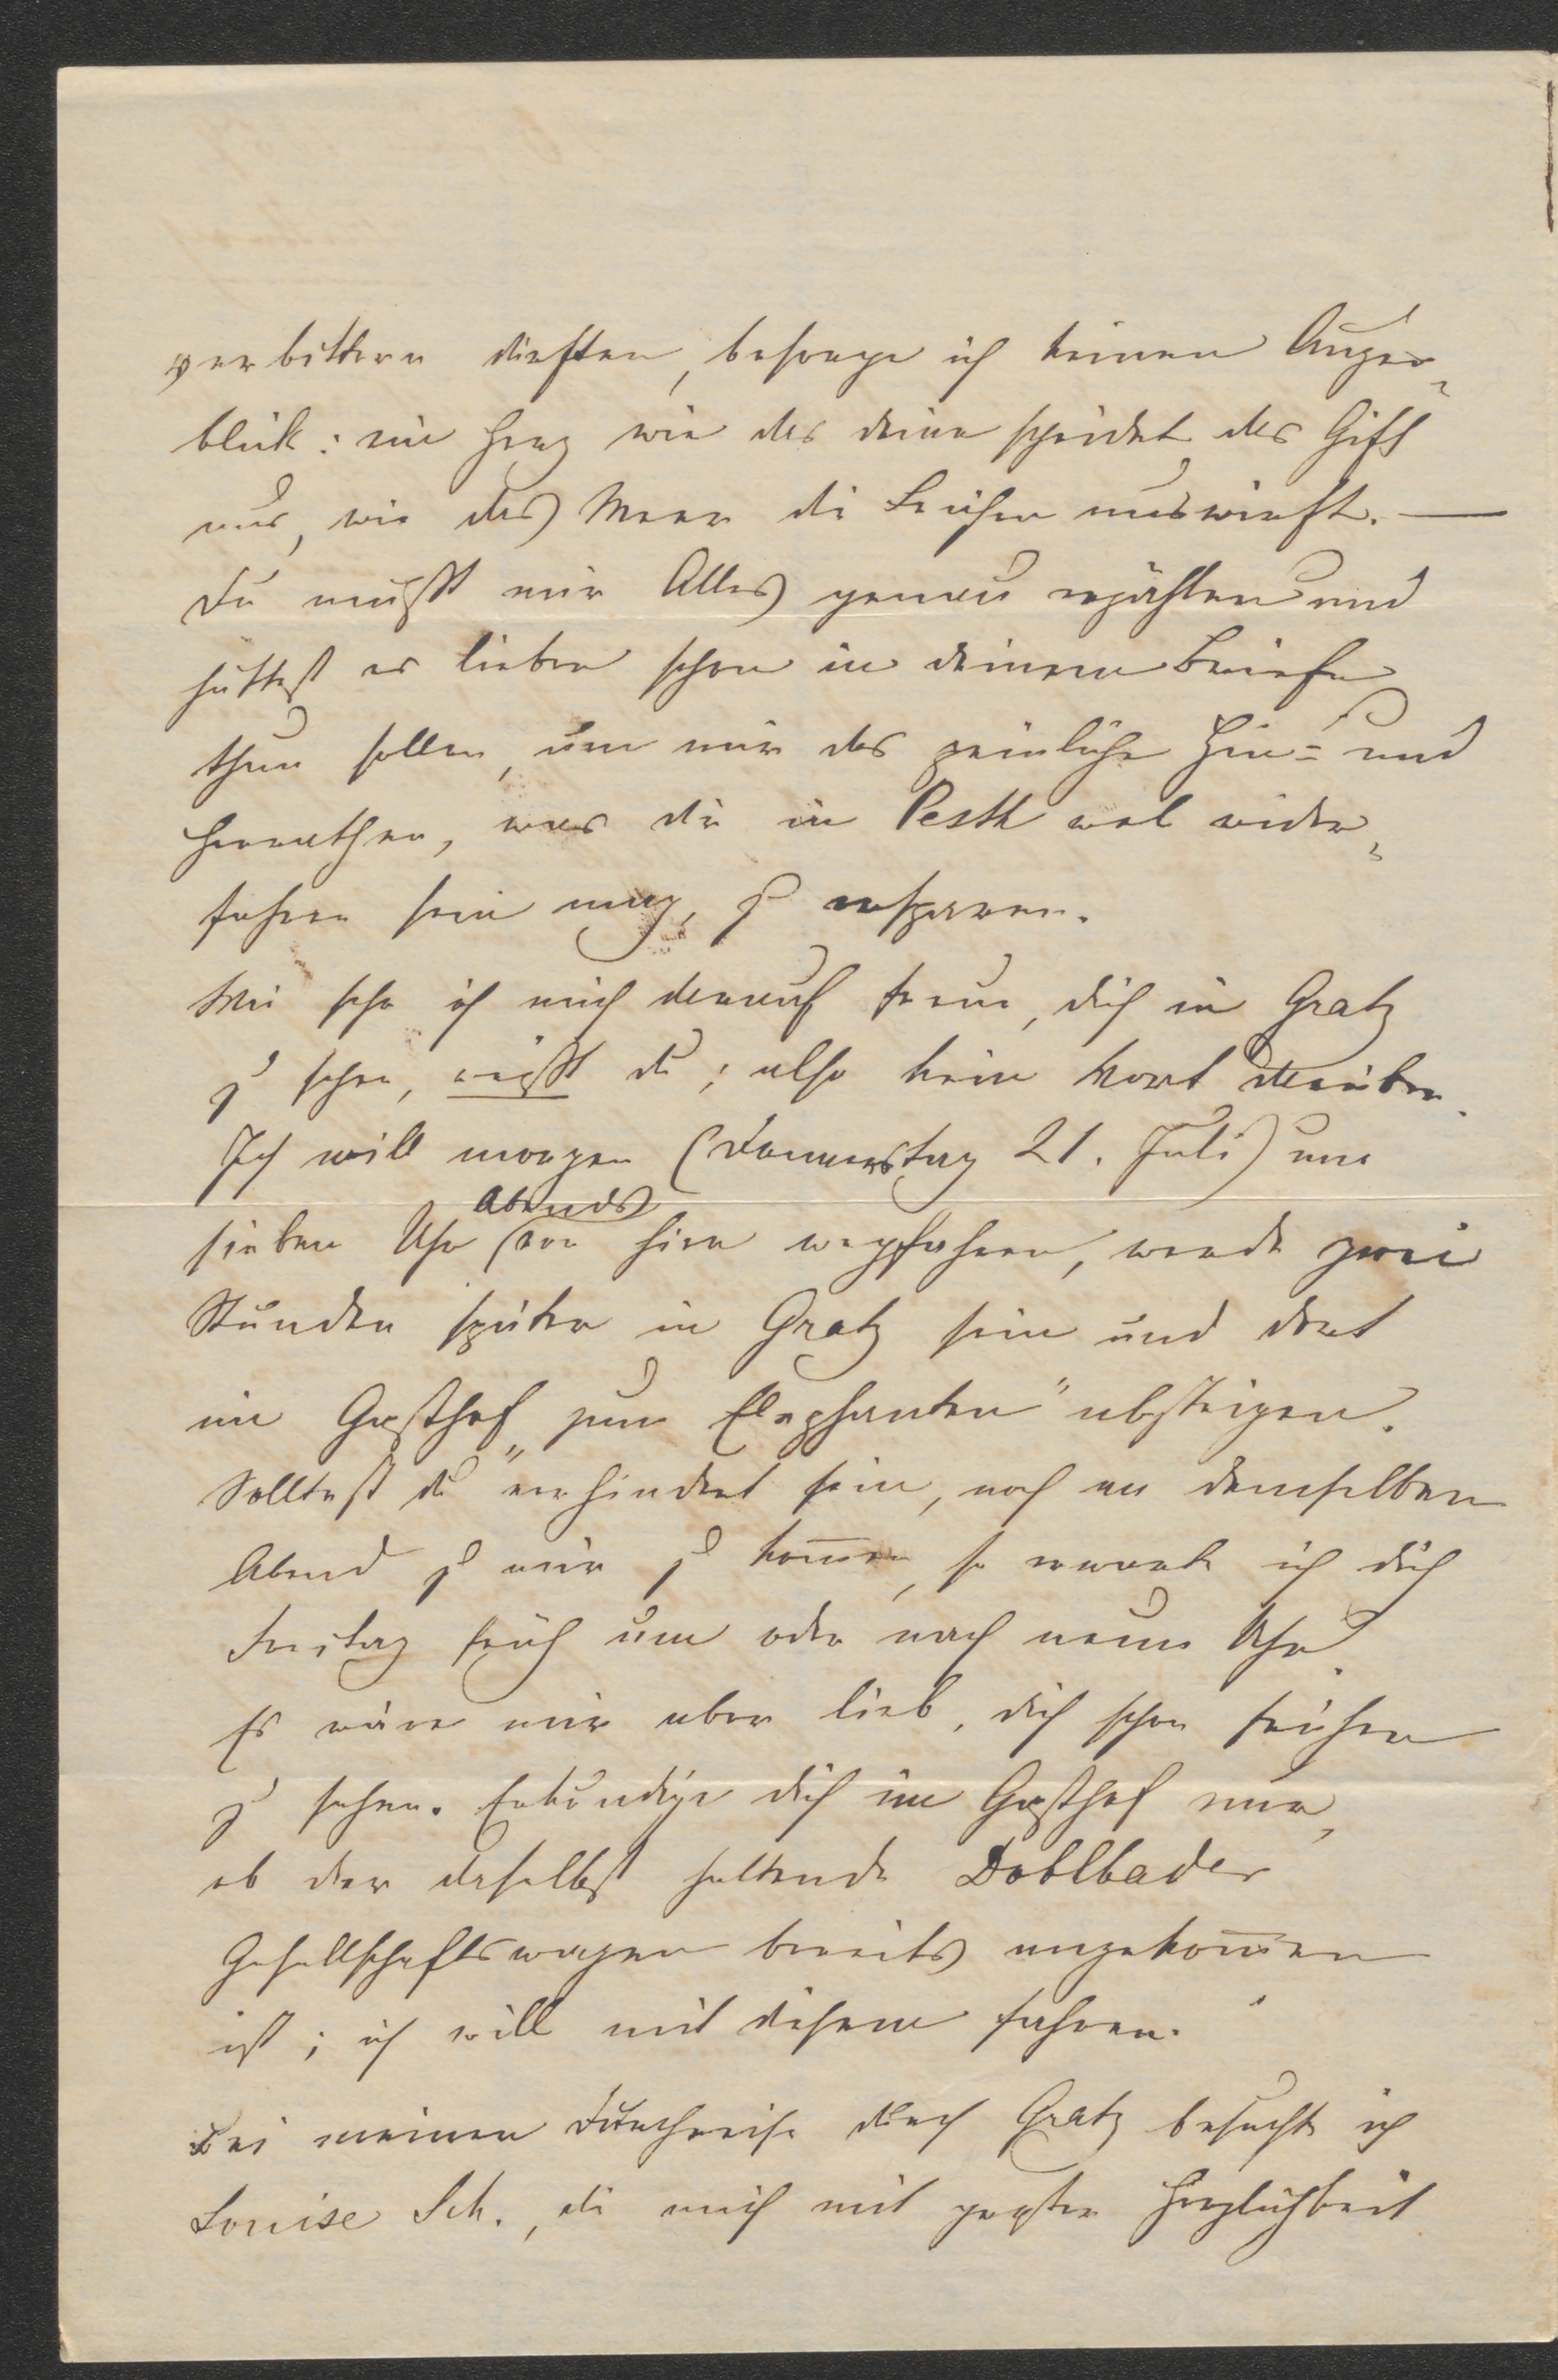 verbittern dürften, besorge ich keinen Augen-
blick: ein Herz wie das deine scheidet das Gift
aus, wie das Meer die Leichen auswirft. —
Du mußt mir Alles genau erzählen und
hättest es lieber schon in deinem Briefe
thun sollen, um mir das peinliche Hin- und
Herrathen, was dir in Pesth wol wider-
fahren sein mag, zu ersparen.
Wie sehr ich mich darauf freue, dich in Gratz
zu sehen, weißt du; also kein Wort darüber.
Ich will morgen (Donnerstag 21. Juli) um
Abends
sieben Uhr von hier wegfahren, werde zwei
Stunden später in Gratz sein und dort
im Gasthof „zum Elephanten" absteigen.
Solltest du verhindert sein, noch an demselben
Abend zu mir zu kom̄en, so erwarte ich dich
Freitag früh um oder nach neun Uhr.
Es wäre mir aber lieb, dich schon früher
zu sehen. Erkundige dich im Gasthof nur,
ob der daselbst haltende Doblbader
Gesellschaftswagen bereits angekom̄en
ist; ich will mit diesem fahren.
Bei meiner Durchreise durch Gratz besuchte ich
Louise Sch., die mich mit großer Herzlichkeit